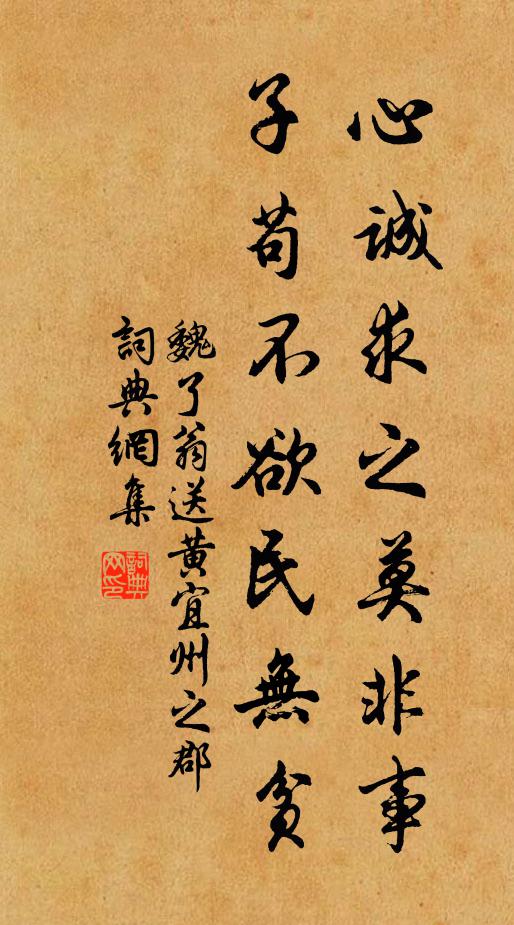 心誠求之莫非事
子苟不欲民無貧
魏了翁送黄宜州之郡
詞典網集
詞典網印